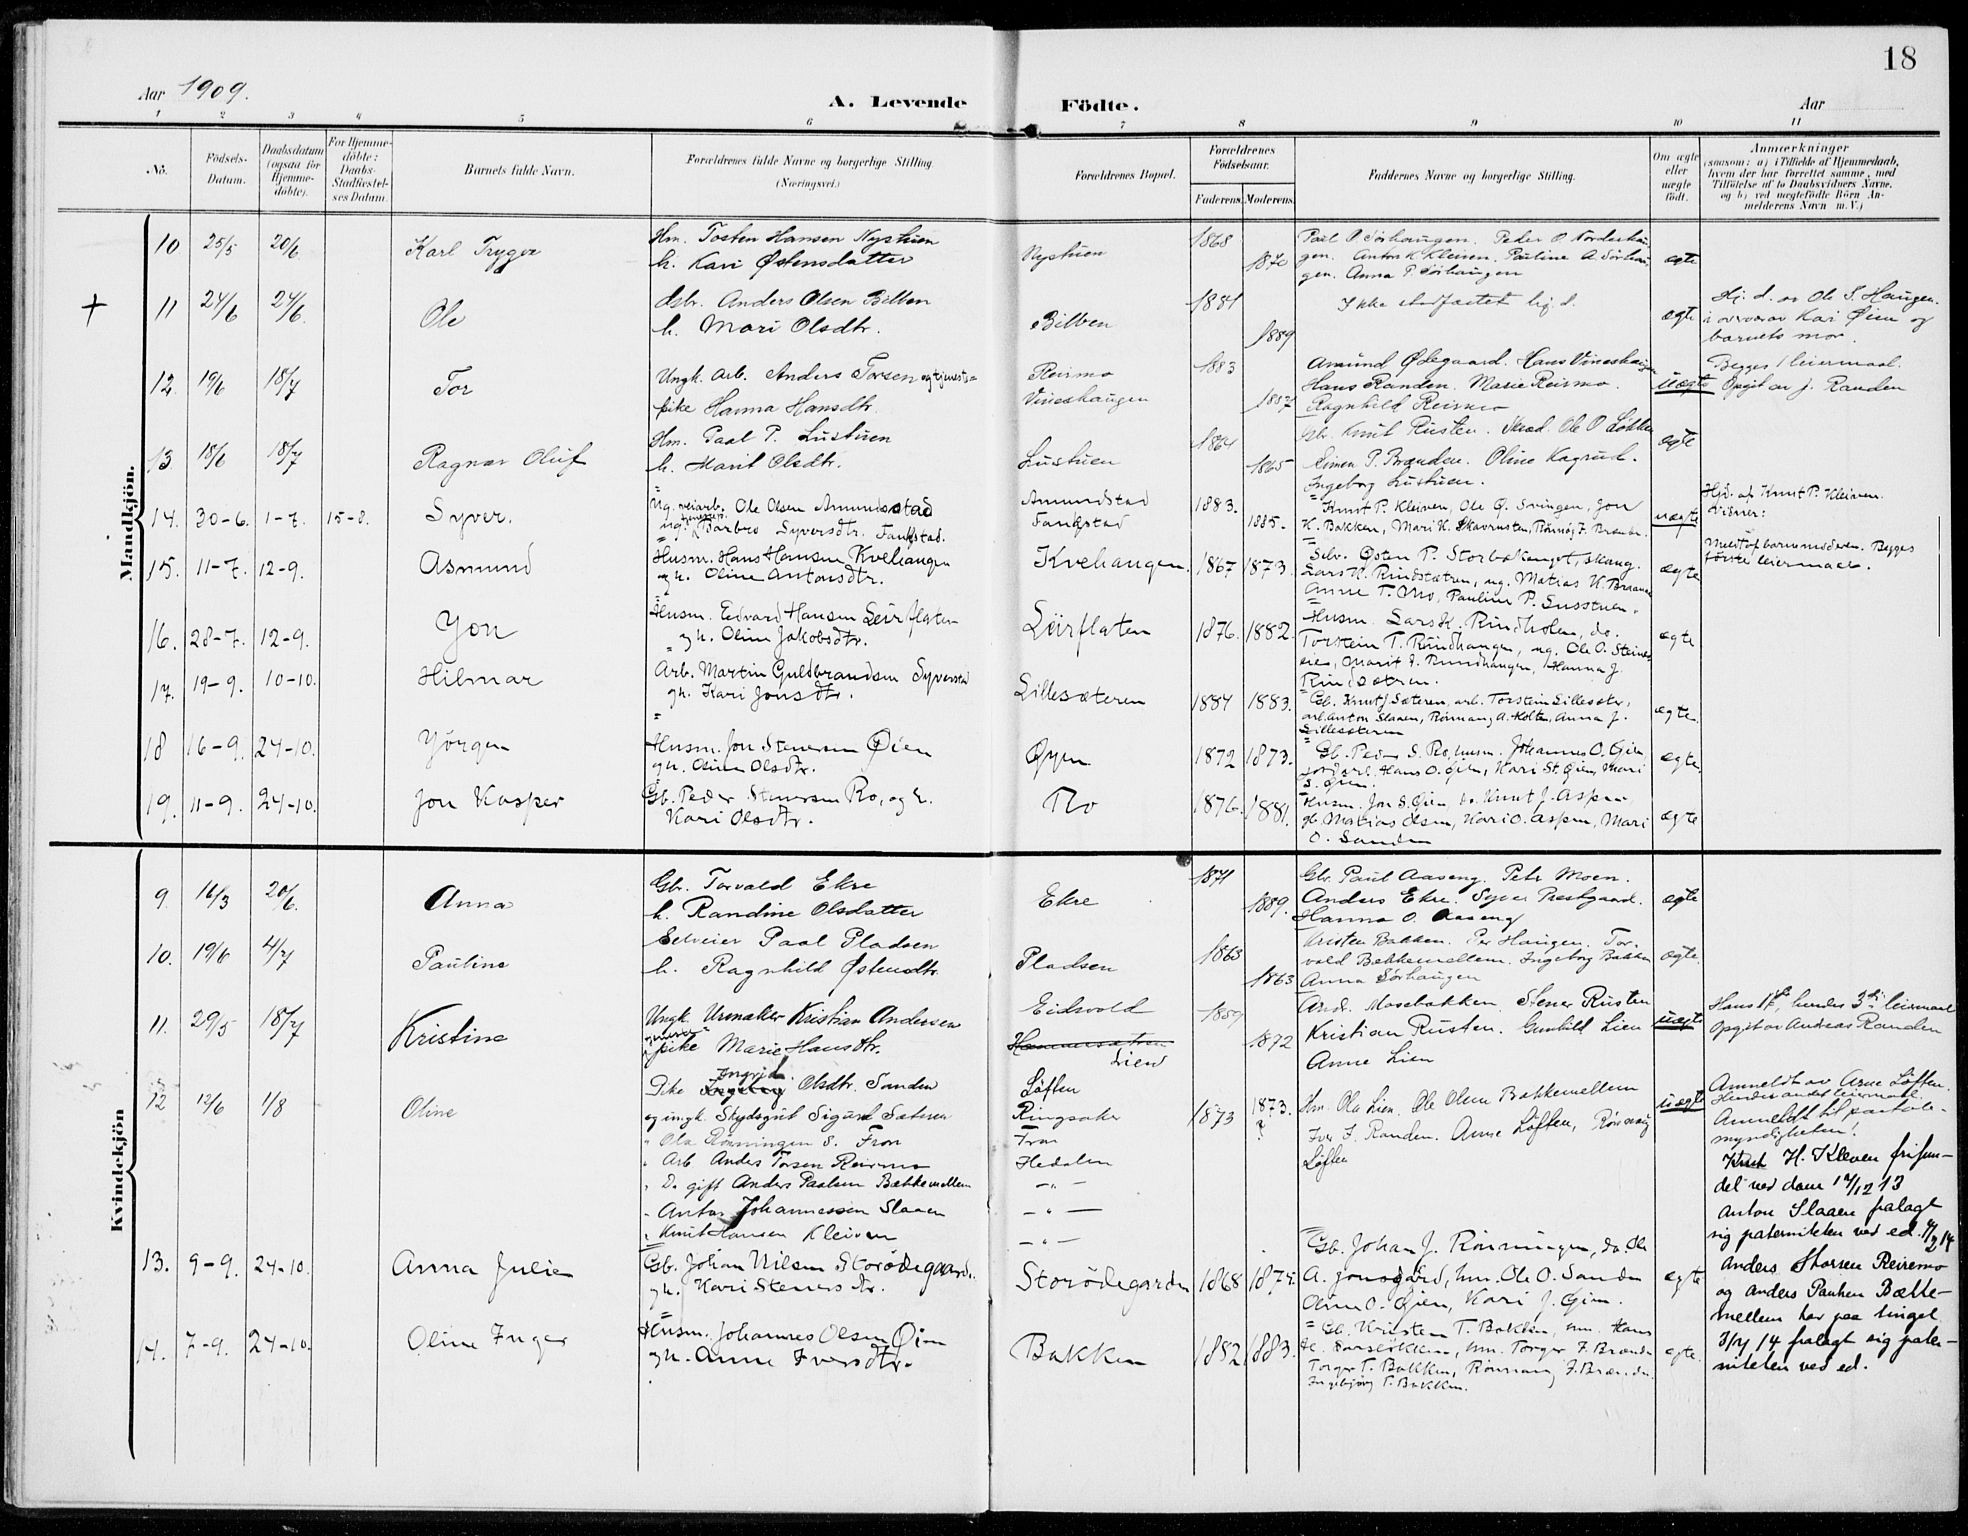 18
Aar 1909.
A. Levende
Födte.
Aar
1 2 3 4 5 6 7 8 9 10 11
No.
Födsels-
Datum.
Daabsdatum
(ogsaa for
Hjemme-
döbte).
For Hjemme-
döbte:
Daabs-
Stadfæstel-
ses Datum.
Barnets fulde Navn.
Forældrenes fulde Navne og borgerlige Stilling
(Næringsvei.)
Forældrenes Bopæl.
Forældrenes
Födselsaar.
Faderens. Moderens.
Faddernes Navne og borgerlige Stilling.
Om ægte
eller
uægte
födt.
Anmærkninger
(saasom: a) i Tilfælde af Hjemmedaab,
hvem der har forrettet samme, med
Tilföielse af to Daabsvidners Navne.
og b) ved uægtefödte Börn An-
melderens Navn m. V.)
Mandkjön.
10 25/5 20/6 Karl Trygve
Hm. Tosten Hansen Nystuen
h. Kari Østensdatter
Nystuen 1868 1870
Paul O. Sørhaugen. Peder O. Norderhau-
gen. Anton K. Kleiven. Pauline A. Sørhau-
gen. Anna P. Sørhaugen
ægte
+ 11 24/6 24/6. Ole
Anders Olsen Bilben
h. Mari Olsdtr.
Bilben 1881 1889
Ikke stadfæstet hj. d.
ægte
Hj. d. av Ole S. Haugen.
i overvær av Kari Øien og
barnets mor.
12 19/6 18/7 Tor
Ungk. Arb. Anders Torsen og tjeneste-
pike Hanna Hansdtr.
Reismo
Vineshaugen
1883 1887
Amund Ødegaard. Hans Vineshaugen
Hans Randen. Marie Reismo.
Ragnhild Reismo
uægte
Begges 1 leiermaal.
Opgit av J. Randen
13 18/6 18/7 Ragnar Oluf
Hm. Paal P. Lustuen
h. Marit Olsdtr.
Lustuen 1864 1865
Gbr. Knut Rusten. Skræd. Ole O. Løkken
Simen P. Brænden. Oline Kagrud.
Ingeborg Lustuen.
ægte
14. 30-6. 1-7. 15-8. Syver.
Ug. veiarb. Ole Olsen Amundstad
Barbro Syversdtr. Fangstad.
Amundstad
Fangstad
1883. 1885.
Knut P. Kleiven, Ole Q. Svingen, Jon
K. Bakken, Mari K. Skavrusten, Rønnøg F. Brænden.
uægte
Hjd. af Knut P. Kleiven.
Vidner:
Meldt af barnemoderen. Begges
første leiermaal.
15. 11-7. 12-9. Asmund
Husm. Hans Hansen Kvehaugen
og h. Oline Antonsdtr.
Kvehaugen. 1867 1873.
Selv. Østen P. Storbakengt, skaug.
Lars K. Rindsætren, ug. Matias K. Braanen
Anne T. Mo, Pauline P. Lusstuen.
ægte
16. 28-7. 12-9. Jon
Husm. Edvard Hansen Leirflaten
og h. Oline Jakobsdtr.
Leirflaten 1876. 1882.
Husm. Lars K. Rindholen, do.
Torstein T. Rindhaugen, ug. Ole O. Steines-
eien, Marit J. Rindhaugen, Hanna J.
Rindsætren.
ægte
17. 19-9. 10-10. Hilmar
Arb. Martin Guldbrandsen Syverstad
og h. Kari Jonsdtr.
Lillesæteren 1884 1883.
Gb. Knut J. Sæteren, arb. Torstein Lillesæter,
arb. Anton Slaaen, Rønnaug A. Holten, Anna J.
Lillesæteren
ægte.
18 16-9. 24-10. Jörgen
Husm. Jon Stenersen Øien
og h. Oline Olsdtr.
Øyen 1872 1873.
Gb. Peder S. Ro, husm. Johannes O. Øien
jordarb. Hans O. Øien, Kari St. Øien, Mari
S. Øien.
ægte.
19. 11-9. 24-10. Jon Kasper
Gb. Peder Stenersen Ro, og h.
Kari Olsdtr.
Ro 1876. 1881.
Husm. Jon S. Øien, do. Knut J. Aspen,
gb. Matias Olsen, Kari O. Aspen, Mari
O. Sanden
ægte
Kvindekjön
9. 16/3 20/6. Anna
Gbr. Torvald Ekre
h. Randine Olsdatter
Ekre 1871 1889.
Gbr. Paul Aaseng. Petr Moen.
Anders Ekre. Syver Prestgaard.
Hanna O. Aaseng
ægte
10. 19/6 4/7 Pauline
Selveier Paal Pladsen
h. Ragnhild Østensdtr.
Pladsen 1863 1863
Kristen Bakken. Per Haugen. Tor-
vald Bækkemellem. Ingeborg Bakken
Anna Sørhaugen
ægte.
11. 29/5 18/7 Kristine
Ungk. Urmaker Kristian Andersen
pike Marie Hansdtr.
Eidsvold
Hammersætren
Lien
1859 1872
And. Mosebakken. Stener Rusten
Kristian Rusten. Gunhild Lien
Anne Lien
uægte
Hans 1ste, hendes 3dje leiermaal
Opgit av Andreas Randen
12 12/6 1/8 Oline
Pike Ingeborg Ingrid Olsdtr. Sanden
og ungk. Skydsgut Sigurd Sæteren
" Ola Rønningen S. Fron
" Arb Anders Torsen Reismo
" Do gift Anders Paalsen Bækkemellem
" Anton Johannessen Slaaen
" Knut Hansen Kleiven
Løften
Ringsaker
Fron
Hedalen
— " —
— " —
— " —
1873 1873. ?
Hm. Ola Lien. Ole Olsen Bækkemellem
Iver I. Randen. Anne Løften, Rønnaug
Løften
uægte
Anmeldt av Arne Løften.
Hendes andet leiermaal.
Anmeldt til partole-
myndigheten!
Knut H. Kleven frifun-
det ved dom 17/12 13
Anton Slaaen fralagt
sig paterniteten ved ed. 4/2 14
Anders Thorsen Reiremo
og Anders Paulsen Bække-
mellem har paa tinget
3/4 14 fralagt sig pater-
niteten ved ed.
13. 9-9. 24-10. Anna Julie
Gb. Johan Nilsen Storødegaard.
og h. Kari Stenersdtr.
Storødegarden 1868 1874.
Gb. Johan J. Rønningen, do. Ole
A. Jonsgård, hm. Ole O. Sanden
Oline O. Øien, Kari J. Øien.
ægte
14. 7-9. 24-10. Oline Inger
Husm. Johannes Olsen Øien
og h. Anne Iversdtr.
Bakken 1852 1883.
Gb. Kristen T. Bakken, hm. Hans
hm. Torger I. Brænden
Torger T. Bakken, Rønnaug I. Brænden
Ingebjørg T. Bakken.
ægte.